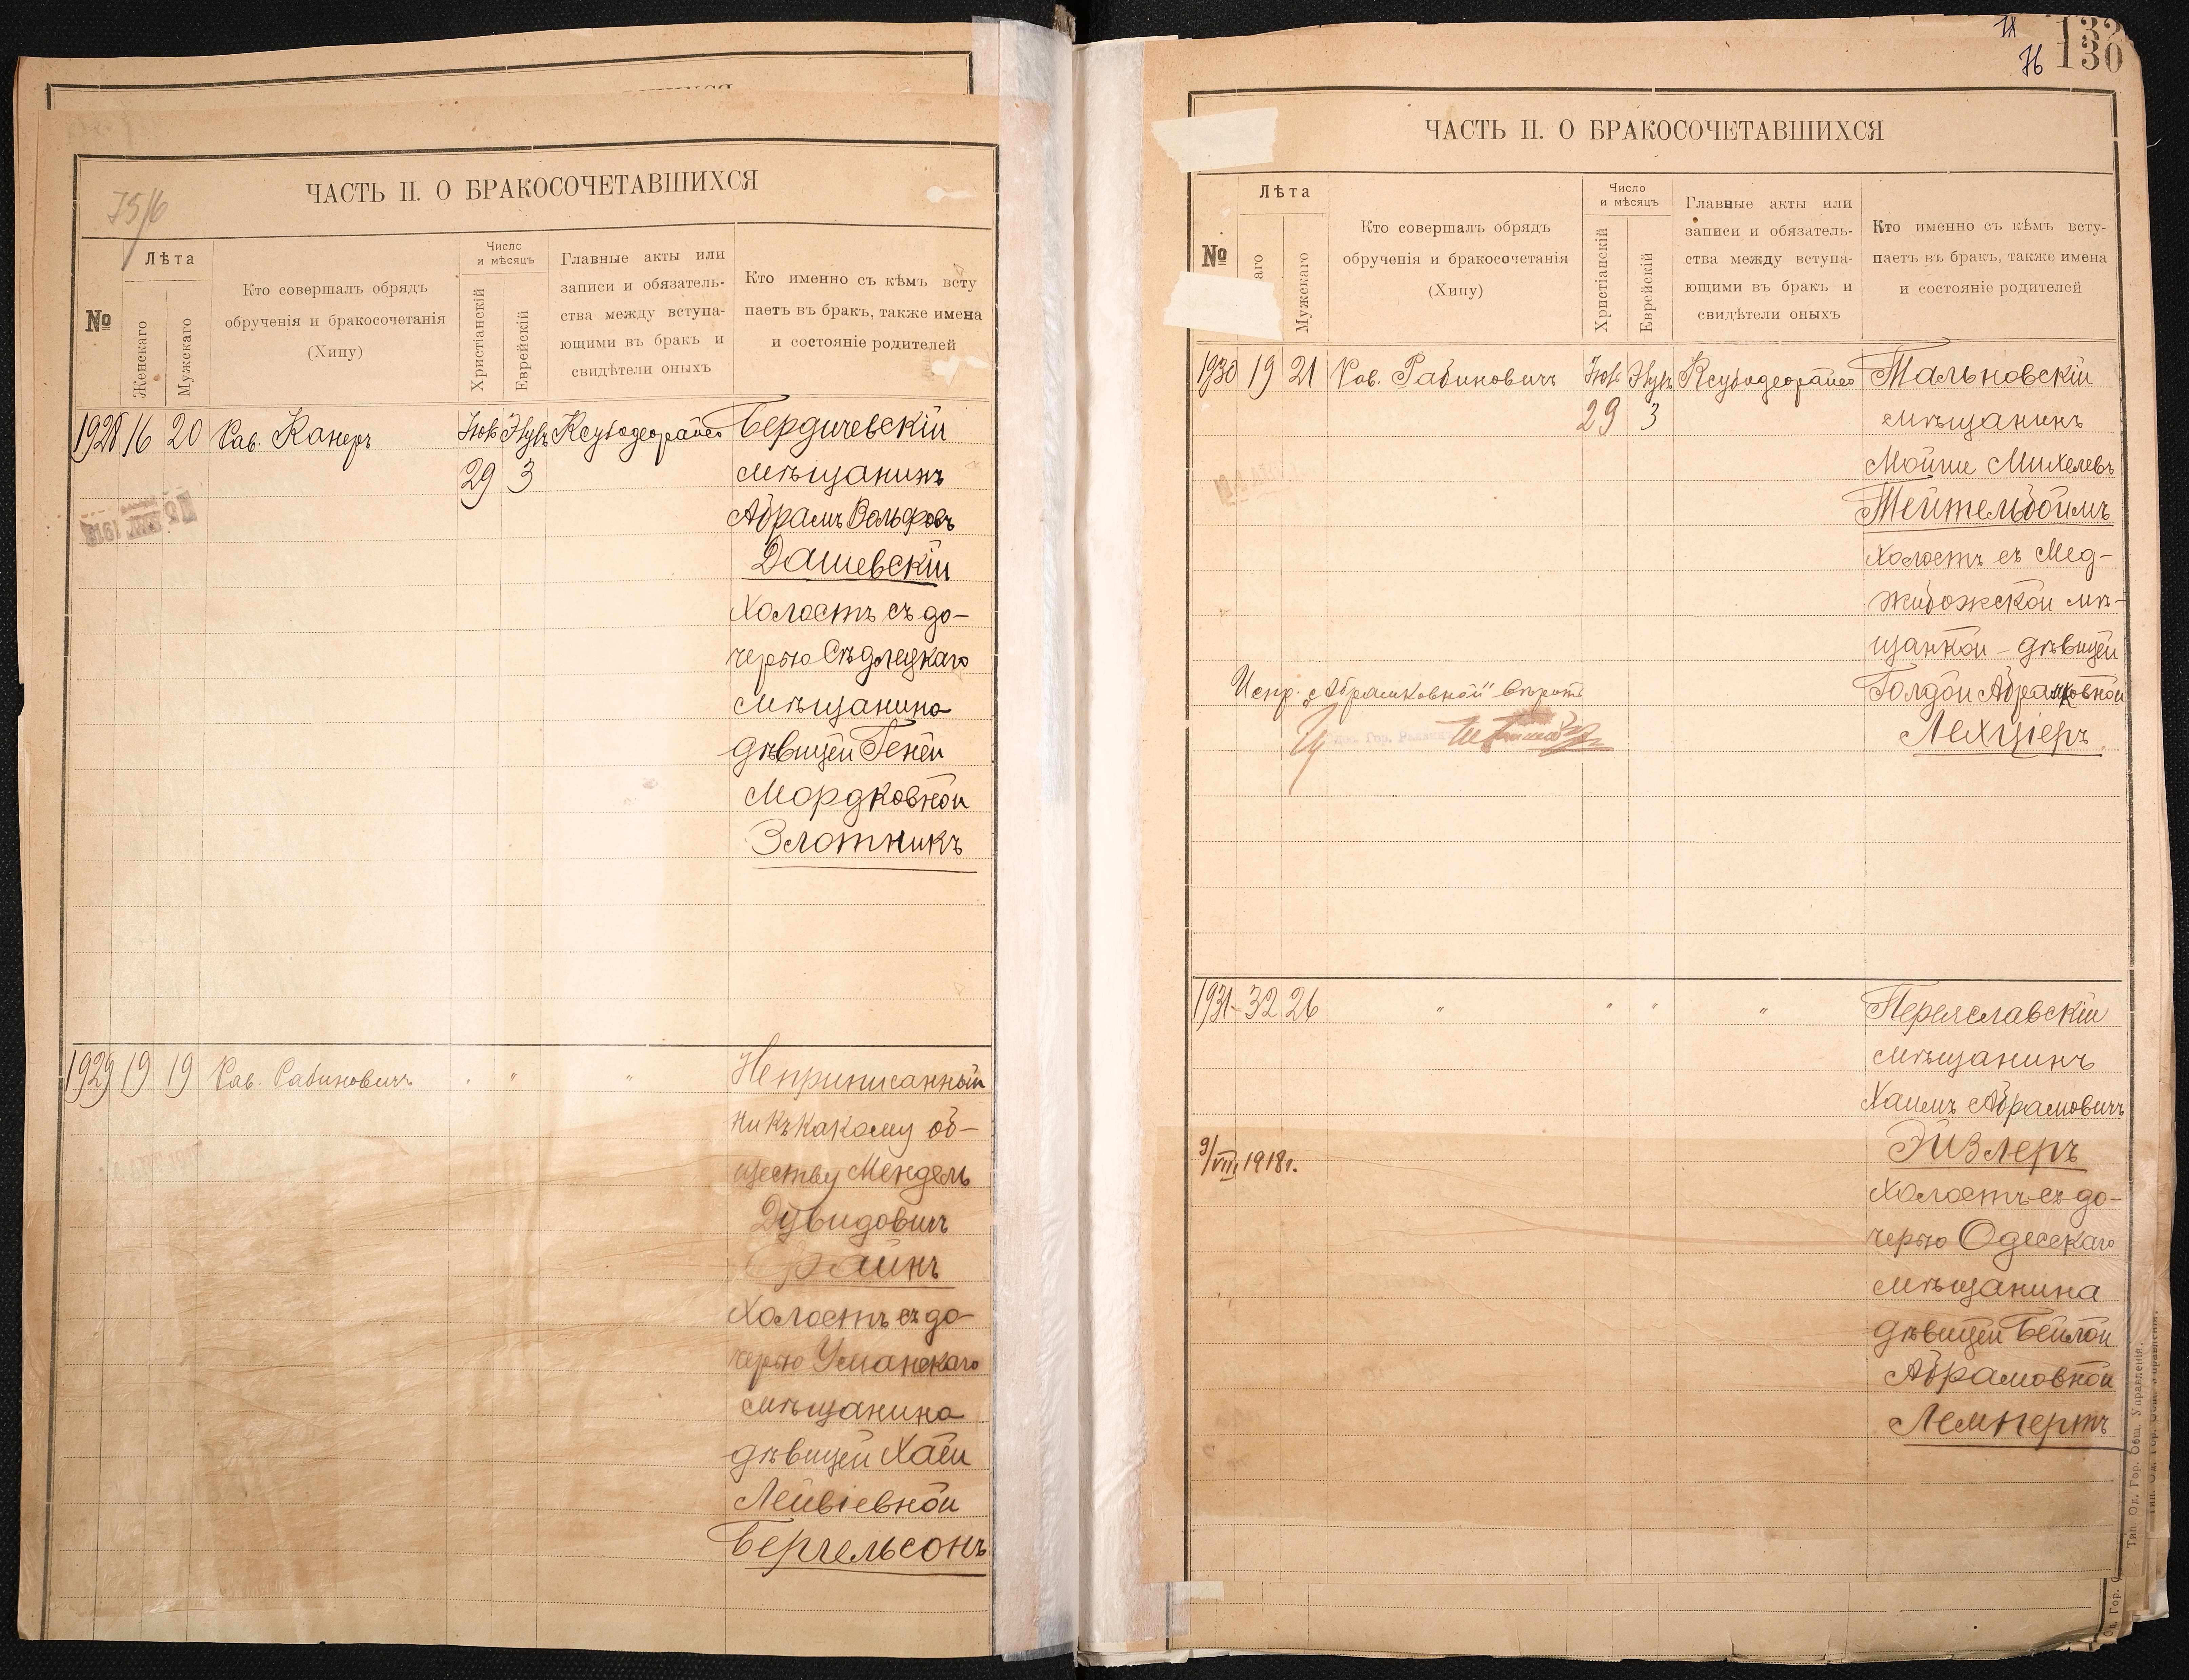 75/6
ЧАСТЬ II. О БРАКОСОЧЕТАВШИХСЯ
№
Лѣта
Женскаго
Мужскаго
Кто совершалъ обрядъ
обрученія и бракосочетанія
(Хипу)
Число
и мѣсяцъ
Христіанскій
Еврейскій
Главные акты или
записи и обязатель-
ства между вступа-
ющими въ бракъ и
свидѣтели оныхъ
Кто именно съ кѣмъ всту
паетъ въ бракъ, также имена
и состояніе родителей
1928 16 20 Рав. Канеръ
29 3
Бердичевскій
мѣщанинъ
Абрамъ Вольфовъ
Дашевскій
холостъ съ до-
черью Сѣдлецкаго
мѣщанина
дѣвицей Геней
Мордковной
Злотникъ
1929 19 19 Рав. Рабиновичъ " " "
Неприписанный
ни къ какому об-
ществу Мендель
Дувидовичъ
холостъ съ до-
черью Уманскаго
мѣщанина
дѣвицей Хаей
Лейвіевной
Бергельсонъ
76
132
130
ЧАСТЬ II. О БРАКОСОЧЕТАВШИХСЯ
№
Лѣта
аго
Мужскаго
Кто совершалъ обрядъ
обрученія и бракосочетанія
(Хипу)
Число
и мѣсяцъ
Христіанскій
Еврейскій
Главные акты или
записи и обязатель-
ства между вступа-
ющими въ бракъ и
свидѣтели оныхъ
Кто именно съ кѣмъ всту-
паетъ въ бракъ, также имена
и состояніе родителей
1930 19 21 Рав. Рабиновичъ
29 3
Тальновскій
мѣщанинъ
Мойше Михелевъ
Тейтельбоймъ
холостъ съ Мед-
жибожской мѣ-
щанкой - дѣвицей
Голдой Абрамковной
Лехціеръ
Испр. „Абрамковной" вѣрить
1931 32 26 " " " "
Переяславскій
мѣщанинъ
Хаимъ Абрамовичъ
Эйзлеръ
холостъ съ до-
черью Одесскаго
мѣщанина
дѣвицей Бейлой
Абрамовной
Лемпертъ
9/VIII 1918г.
Тип. Од. Гор. Общ. Управленія.